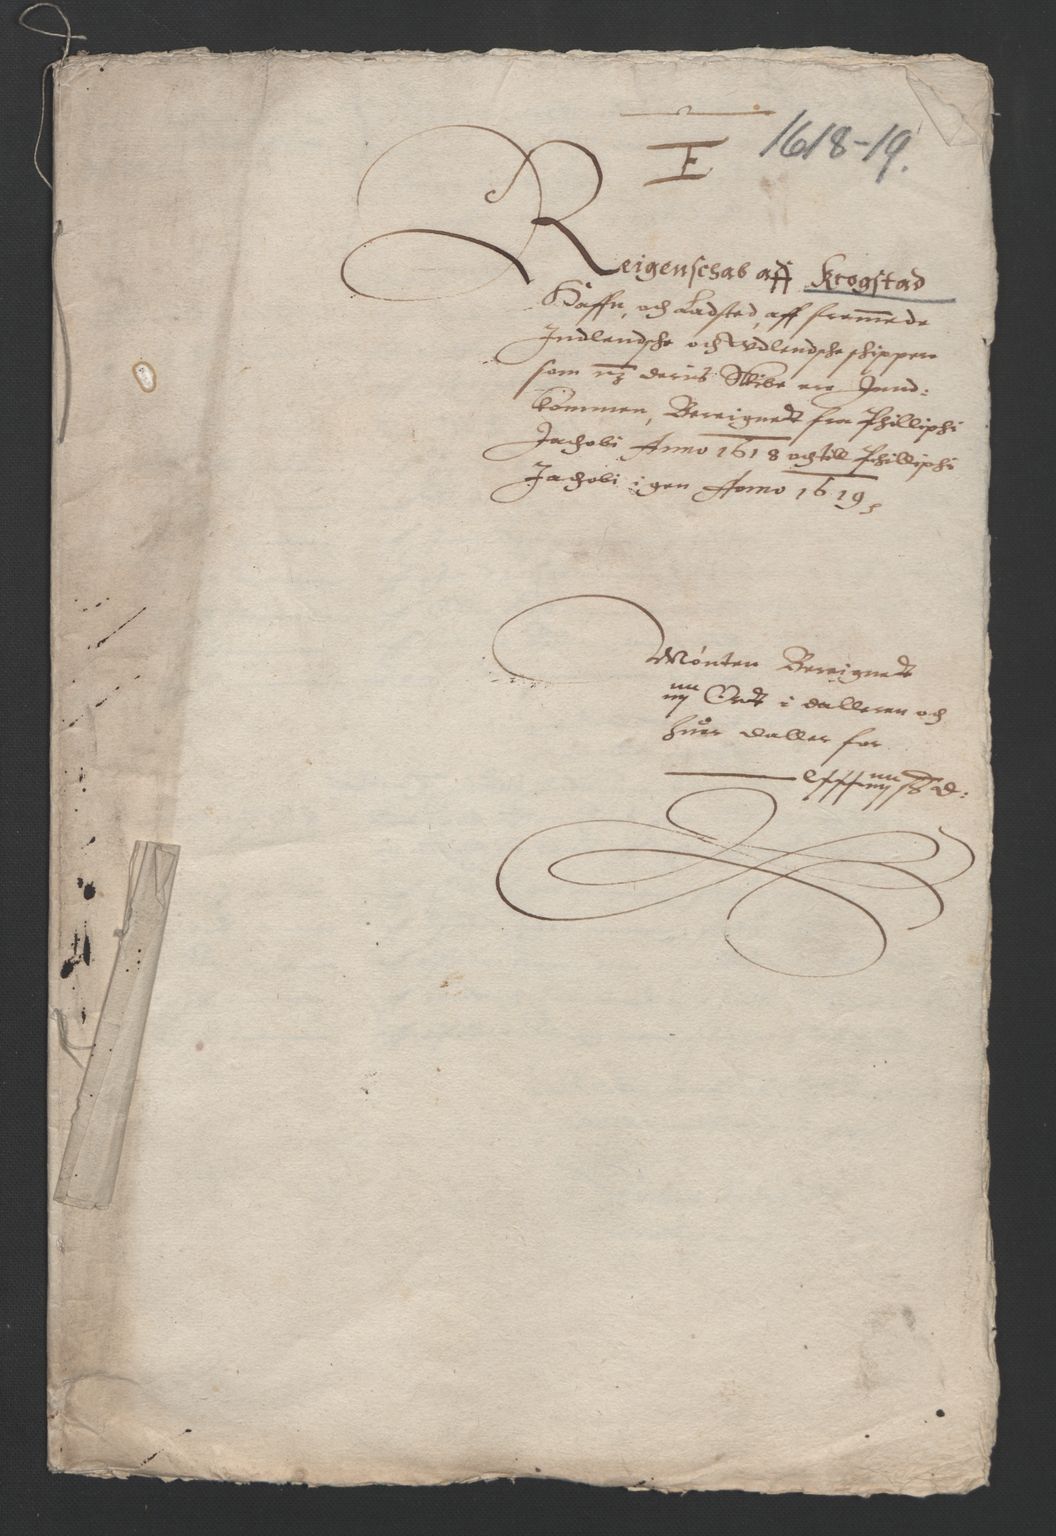 1618-19.
E
Reigenschab aff Krogstad
Haffn, och Ladsted, aff fremmede
Indlendsche och Vdlendsche schippere
som mz deris Skibe ere Ind:
kommen, Bereignedt fra Philliphi
Jachobi Anno 1618 och till Philliphi
Jachobi igen Anno 1619,
Mønten Bereignedt
Ordt i dalleren och
huer daller for